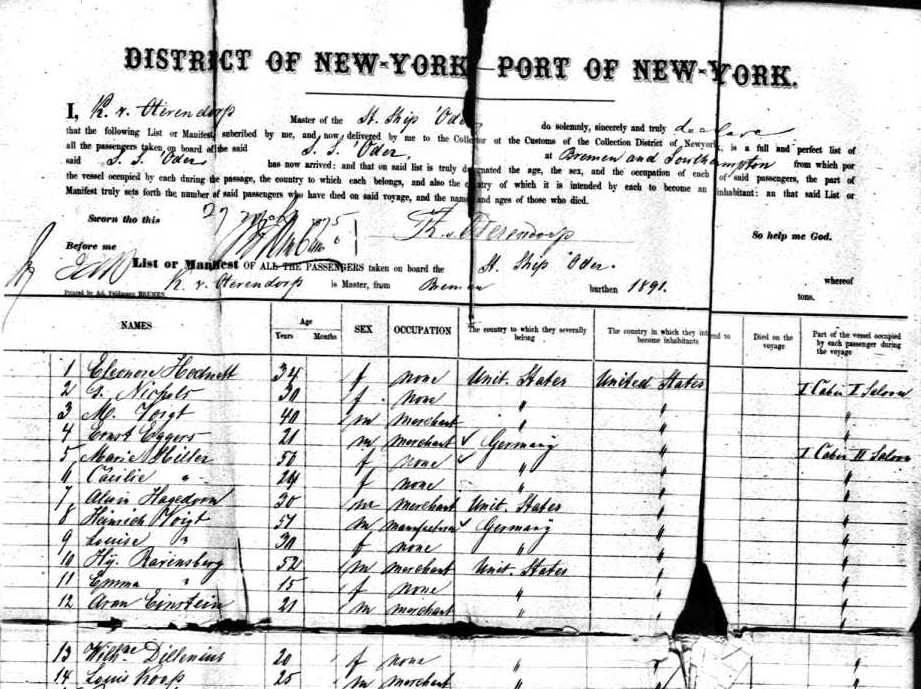 DISTRICT OF NEW-YORK—PORT OF NEW-YORK.
I, K. v. Oterendorp Master of the St. Ship 'Oder do solemnly, sincerely and truly declare
that the following List or Manifest, subcribed by me, and now delivered by me to the Collector of the Customs of the Collection District of Newyork, is a full and perfect list of
all the passengers taken on board of the said S. S. 'Oder, at Bremen and Southampton from which por
said S. S. 'Oder has now arrived: and that on said list is truly designated the age, the sex, and the occupation of each of said passengers, the part of
the vessel occupied by each during the passage, the country to which each belongs, and also the country of which it is intended by each to become an inhabitant: an that said List or
Manifest truly sets forth the number of said passengers who have died on said voyage, and the names and ages of those who died.
Sworn tho this 27 1875 K. v. Oterendorp So help me God.
Before me
List or Manifest OF ALL THE PASSENGERS taken on board the St. Ship 'Oder. whereof
K. v. Oterendorp is Master, from Bremen burthen 1891. tons.
Printed by Ad. BREMEN
NAMES Age Years Months SEX OCCUPATION The country to which they severally belong The country in which they intend to become inhabitants Died on the voyage Part of the vessel occupied by each passenger during the voyage
1 Eleonore Hodnett 34 f none Unit. States United States I Cabin I Saloon
2 G. Nichols 30 f none " " "
3 M. Voigt 40 m merchant " " "
4 Ernst Eggers 21 m merchant Germany " "
5 Marie Hiller 50 f none " " I Cabin II Saloon
6 Cäcilie " 24 f none " " "
7 Alwin Hagedorn 30 m merchant Unit. States " "
8 Heinrich Voigt 51 m Germany " "
9 Louise " 30 f none " " "
10 Hy. Ravensberg 52 m merchant Unit. States " "
11 Emma " 15 f none " " "
12 Aron Einstein 21 m merchant " " "
13 Wilhne Dillenius 20 f none " " "
14 Louis 25 m merchant " "